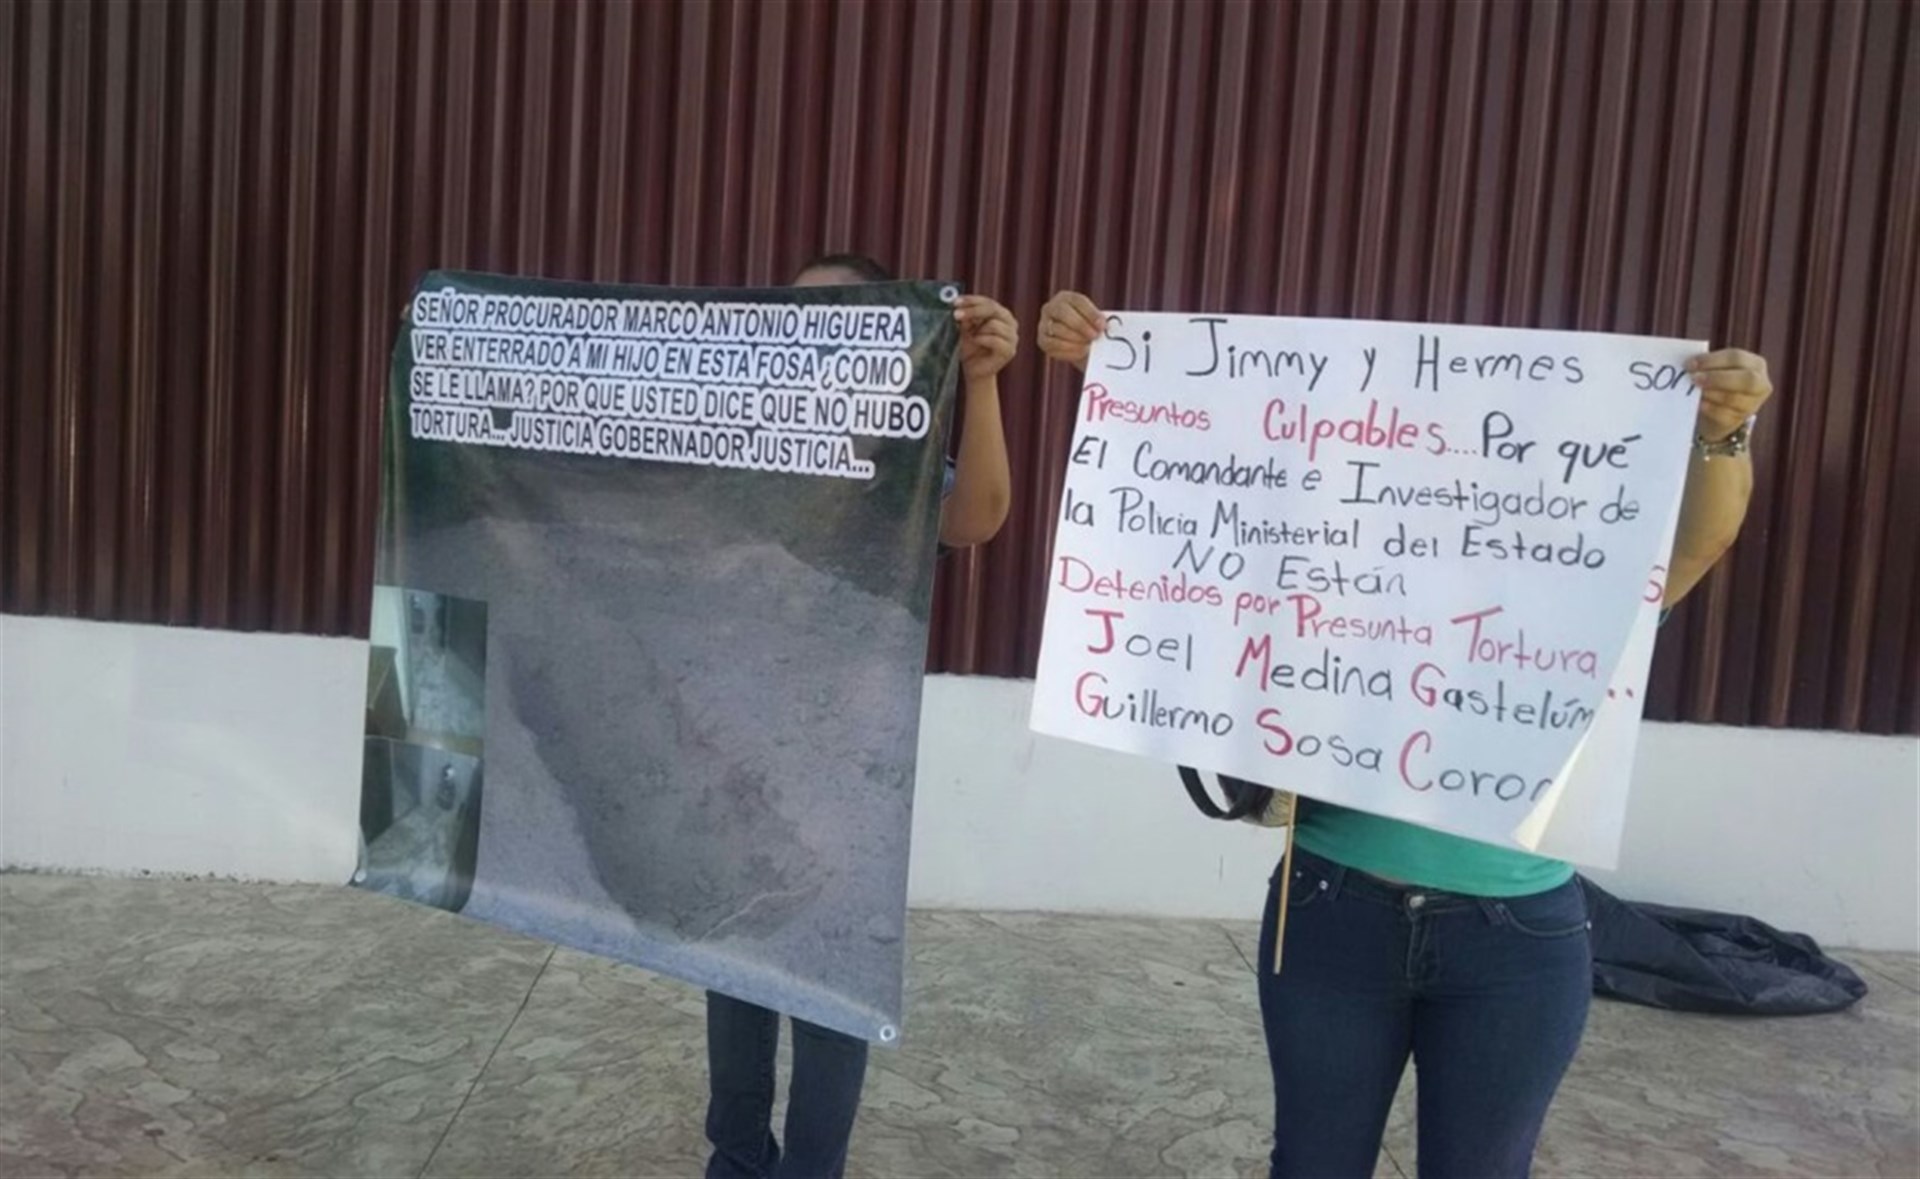 SEÑOR PROCURADOR MARCO ANTONIO HIGUERA
VER ENTERRADO A MI HIJO EN ESTA FOSA ¿COMO
SE LE LLAMA? POR QUE USTED DICE QUE NO HUBO
TORTURA... JUSTICIA GOBERNADOR JUSTICIA...
Si Jimmy y Hermes son
Presuntos Culpables.... Por qué
El Comandante e Investigador de
la Policia Ministerial del Estado
NO Están
Detenidos por Presunta Tortura..
Joel Medina Gastelúm
Guillermo Sosa